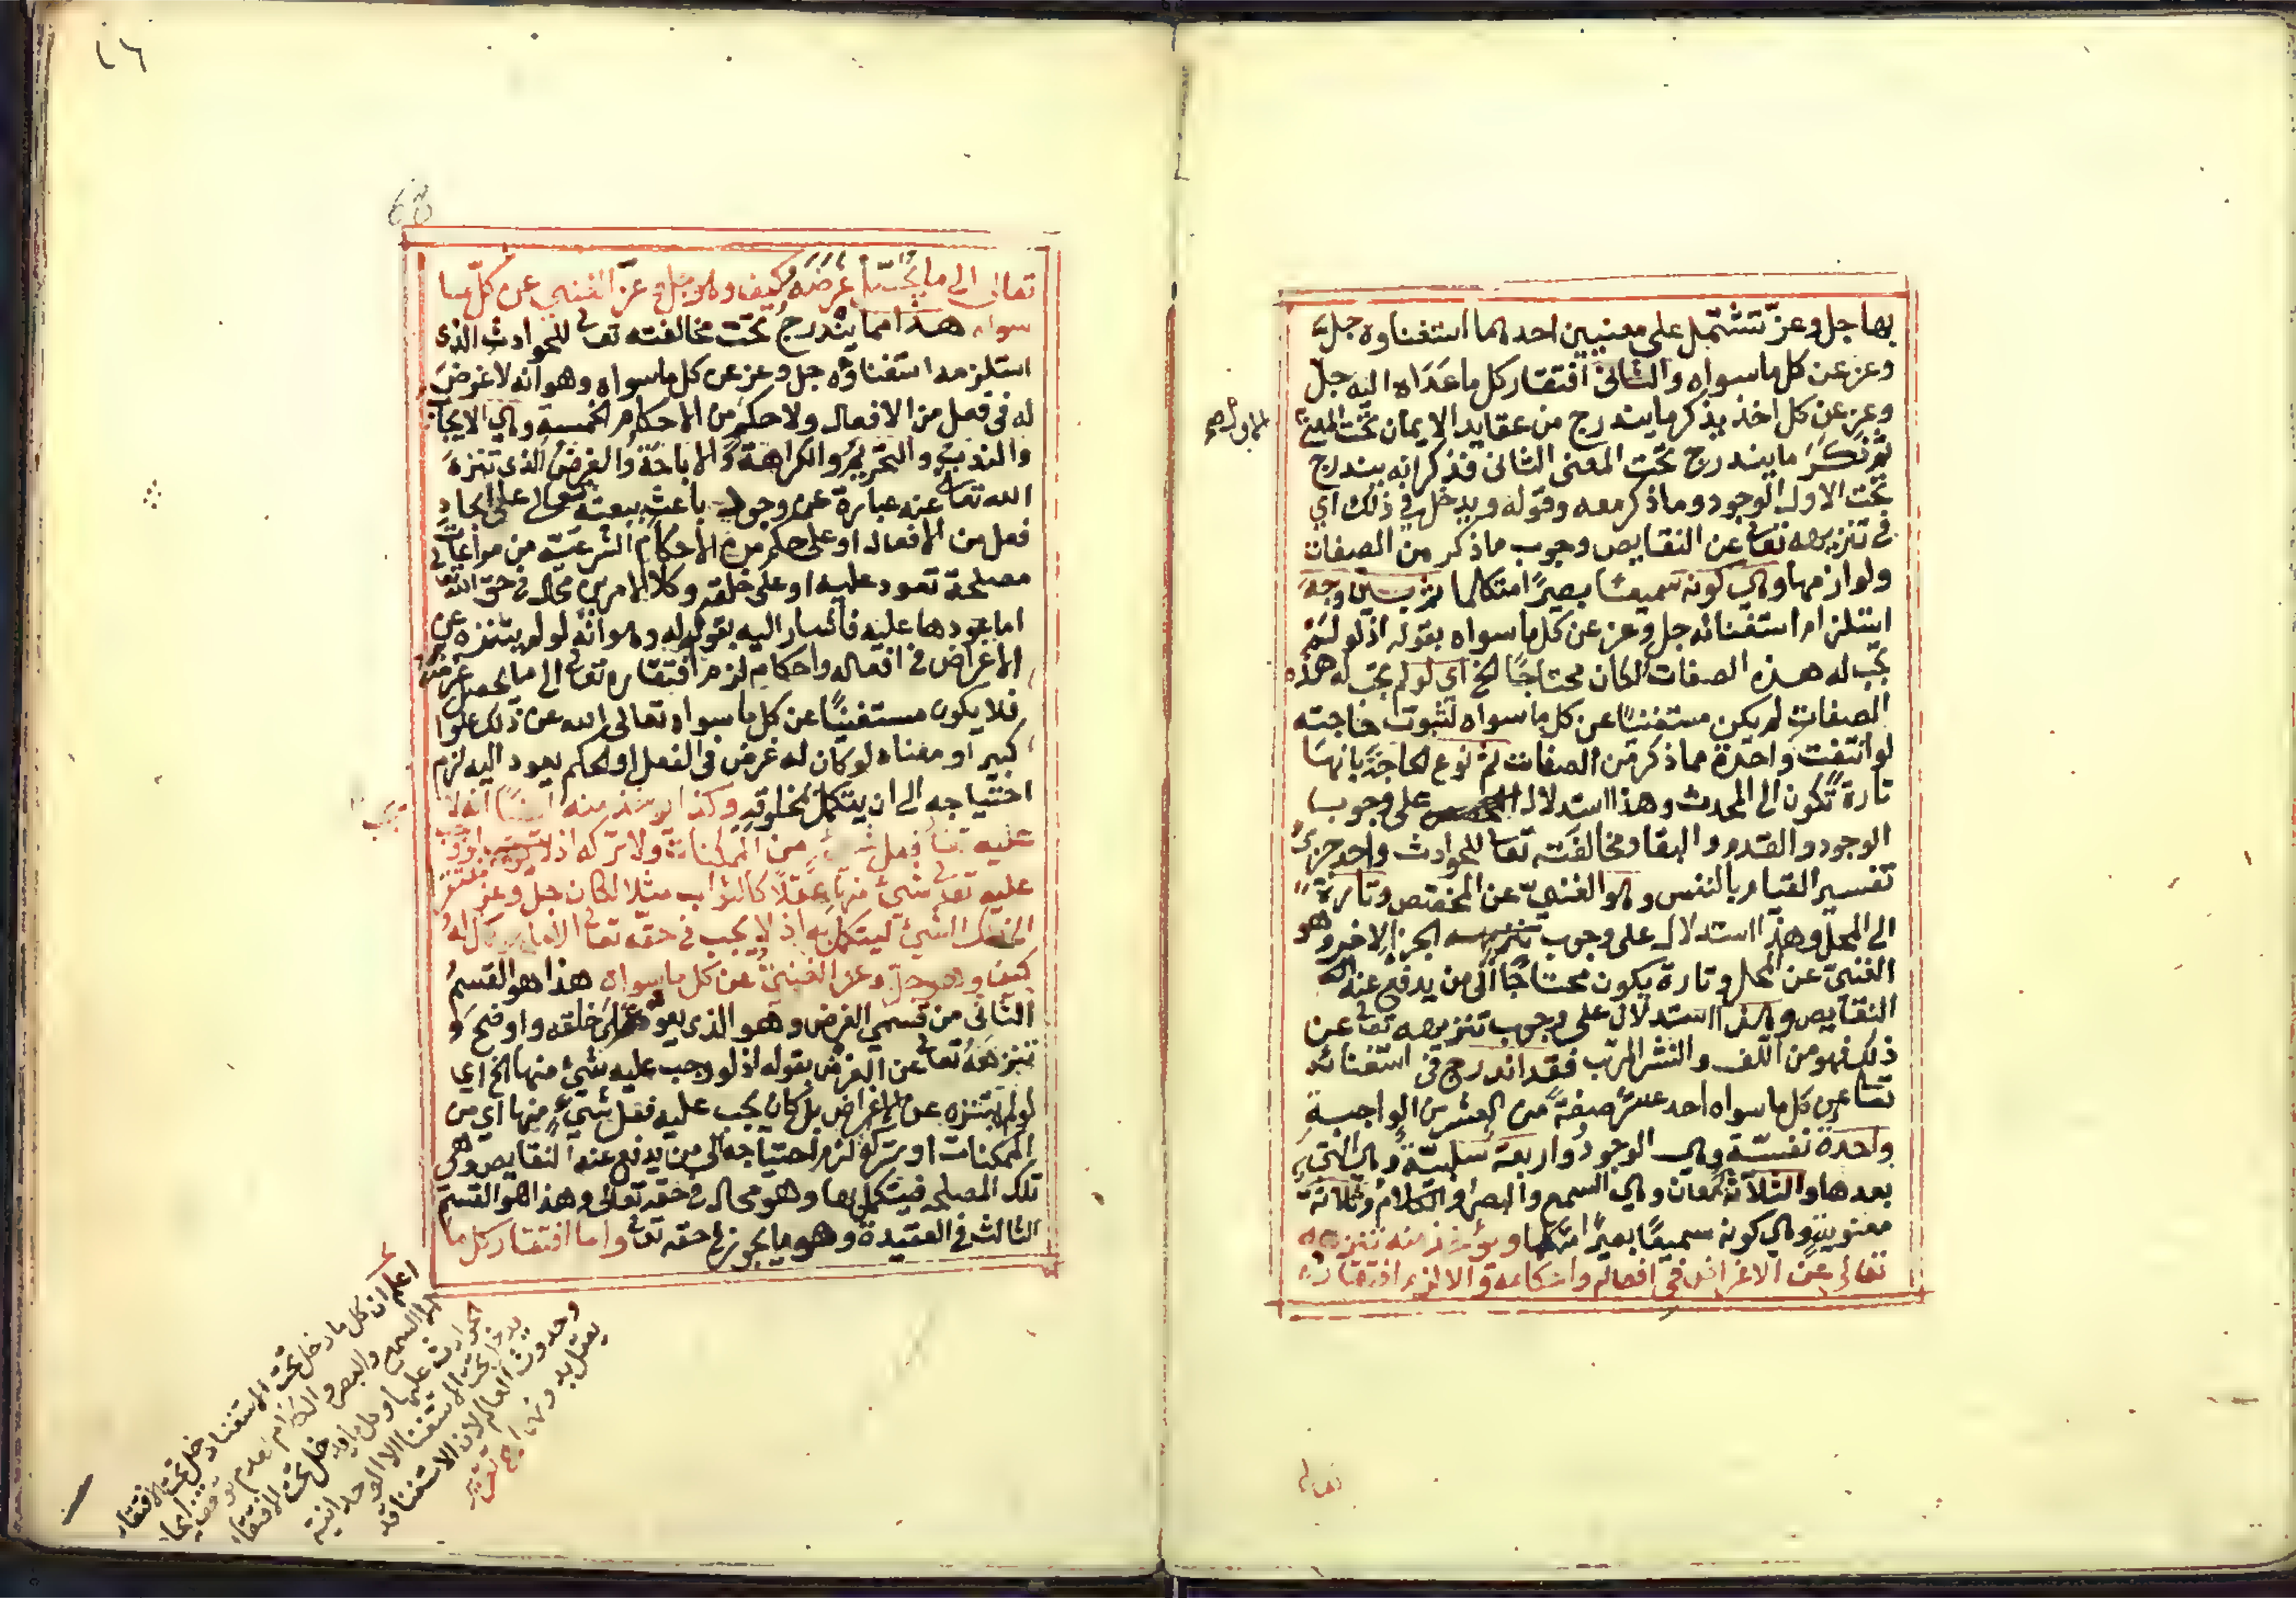 بها جل وعز تشتمل على معنيين احدهما استغناوه جل
وعز عن كل ما سواه والثانى افتقار كل ما عداه اليه جل
وعز عن كل اخذ يذكر ما يندرج من عقايد الايمان تحت المعنى
ثم نكر ما يندرج تحت المعنى الثانى فذكر انه يندرج
تحت الاول الوجود وما ذكر معه وقوله ويدخل في ذلك اي
في تنزيهه تعالى عن النقايص وجوب ما ذكر من الصفات
ولوازمها وهي كونه سميعا بصيرا متكلما ثم بين وجه
استلزام استغنائه جل وعز عن كل ما سواه بقوله اذ لو لم
تجب له هذه الصفات لكان محتاجا الخ اي لو لم تجب له هذه
الصفات لم يكن مستغنيا عن كل ما سواه لثبوت حاجته
لو انتفت واحدة مما ذكر من الصفات ثم نوع الحاجة بانها
تارة تكون الى المحدث وهذا استدلال على وجوب
الوجود والقدم والبقا ومخالفته تعا للحوادث واحد جزئي
تفسير القيام بالنفس وهو الغني عن المخصص وتارة
الى المحل وهذا استدلال على وجوب الجزء الاخير وهو
الغني عن المحل وتارة يكون محتاجا الى من يدفع عنه
النقايص وهذا استدلال على وجوب تنزيهه تعالى عن
ذلك فهو من اللف والنشر المرتب فقد اندرج في استغنائه
تعا عن كل ما سواه احد عشر صفة من العشرين الواجبة
واحدة نفسية وهي الوجود واربعة سلبية وهي التي
بعدها والثلاثة معان وهي السمع والبصر والكلام وثلاثة
معنوية وهي كونه سميعا بصيرا متكلما ويؤخذ منه تنزيهه
تعالى عن الاغراض في افعاله واحكامه والا لزم افتقاره
تعالى
تعالى الى ما يحصل غرضه كيف وهو جل وعز الغني عن كل ما
سواه هذا مما يندرج تحت مخالفته تعالى للحوادث الذى
استلزمه استغناؤه جل وعز عن كل ما سواه وهو انه لا غرض
له في فعل من الافعال ولا حكم من الاحكام الخمسة وهي الايجاب
والندب والتحريم والكراهة والاباحة والغرض الذى تنزه
الله تعالى عنه عبارة عن وجود باعث يبعثه تعالى على ايجاد
فعل من الافعال او على حكم من الاحكام الشرعية من مراعات
مصلحة تعود عليه او على خلقه وكلا الامرين محال في حق الله تعا
اما عودها عليه فاشار اليه بقوله وهو انه لو لم يتنزه عن
الاغراض في افعاله واحكامه لزم افتقاره تعالى الى ما يحصل غرضه
فلا يكون مستغنيا عن كل ما سواه تعالى الله عن ذلك علوا
كبيرا ومعناه لو كان له غرض في الفعل او الحكم يعود اليه لزم
احتياجه الى ان يتكمل بخلوقه وكذا يؤخذ منه ايضا انه لا يجب
عليه تعا فعل شيء من الممكنات ولا تركه اذ لو وجب
عليه تعالى شيء منها عقلا كالثواب مثلا لكان جل وعز مفتقرا
الى ذلك الشيء ليتكمل به اذ لا يجب في حقه تعالى الا ما هو كمال له
كيف وهو جل وعز الغني عن كل ما سواه هذا هو القسم
الثانى من قسمي الغرض وهو الذي يعود على خلقه واوضح
تنزهه تعالى عن الغرض بقوله اذ لو وجب عليه شيء منها الخ اي
لو لم يتنزه عن الاغراض بل كان يجب عليه فعل شيء منها اي من
الممكنات او تركه لزم احتياجه الى من يدفع عنه النقايص وهي
تلك المصلحة فيتكمل بها وهو محال في حقه تعالى وهذا هو القسم
الثالث في العقيدة وهو ما يجوز في حقه تعالى واما افتقار كل ما
اعلم ان كل ما دخل تحت الاستغنا دخل تحت الافتقار
الا السمع والبصر والكلام
يدخل تحت الاستغنا الا الوحدانية
وحدوث العالم لان الاستغنا قد
يعقل بدونها